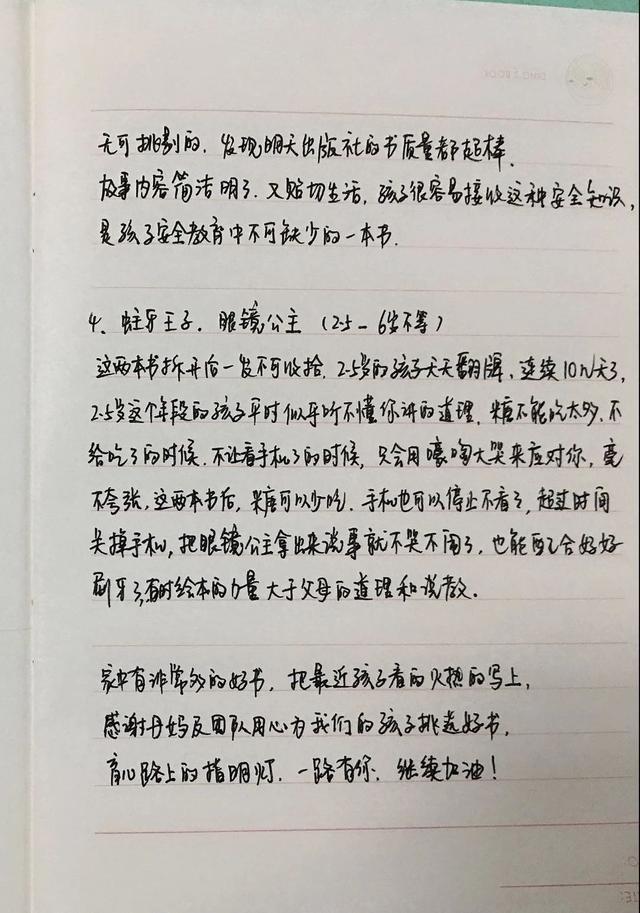 无可挑剔的.发现明天出版社的书质量都超棒.
故事内容简洁明了.又贴切生活,孩子很容易接收这种安全知识,
是孩子安全教育中不可缺少的一本书.
4、蛀牙王子.眼镜公主(2.5-6岁不等)
这两本书拆开后一发不可收拾,2.5岁的孩子天天翻牌、连续10N天了,
2.5岁这个年段的孩子平时似乎听不懂你讲的道理.糖不能吃太多.不
给吃了的时候.不让看手机了的时候,只会用嚎啕大哭来应对你,毫
不夸张,这两本书后,糖可以少吃.手机也可以停止不看了,超过时间
关掉手机,把眼镜公主拿出来说事就不哭不闹了,也能配合好好
刷牙了,有时绘本的力量大于父母的道理和说教.
家中有非常多的好书,把最近孩子看的火热的写上,
感谢丹妈及团队用心为我们的孩子挑选好书,
育儿路上的指明灯.一路有你.继续加油!